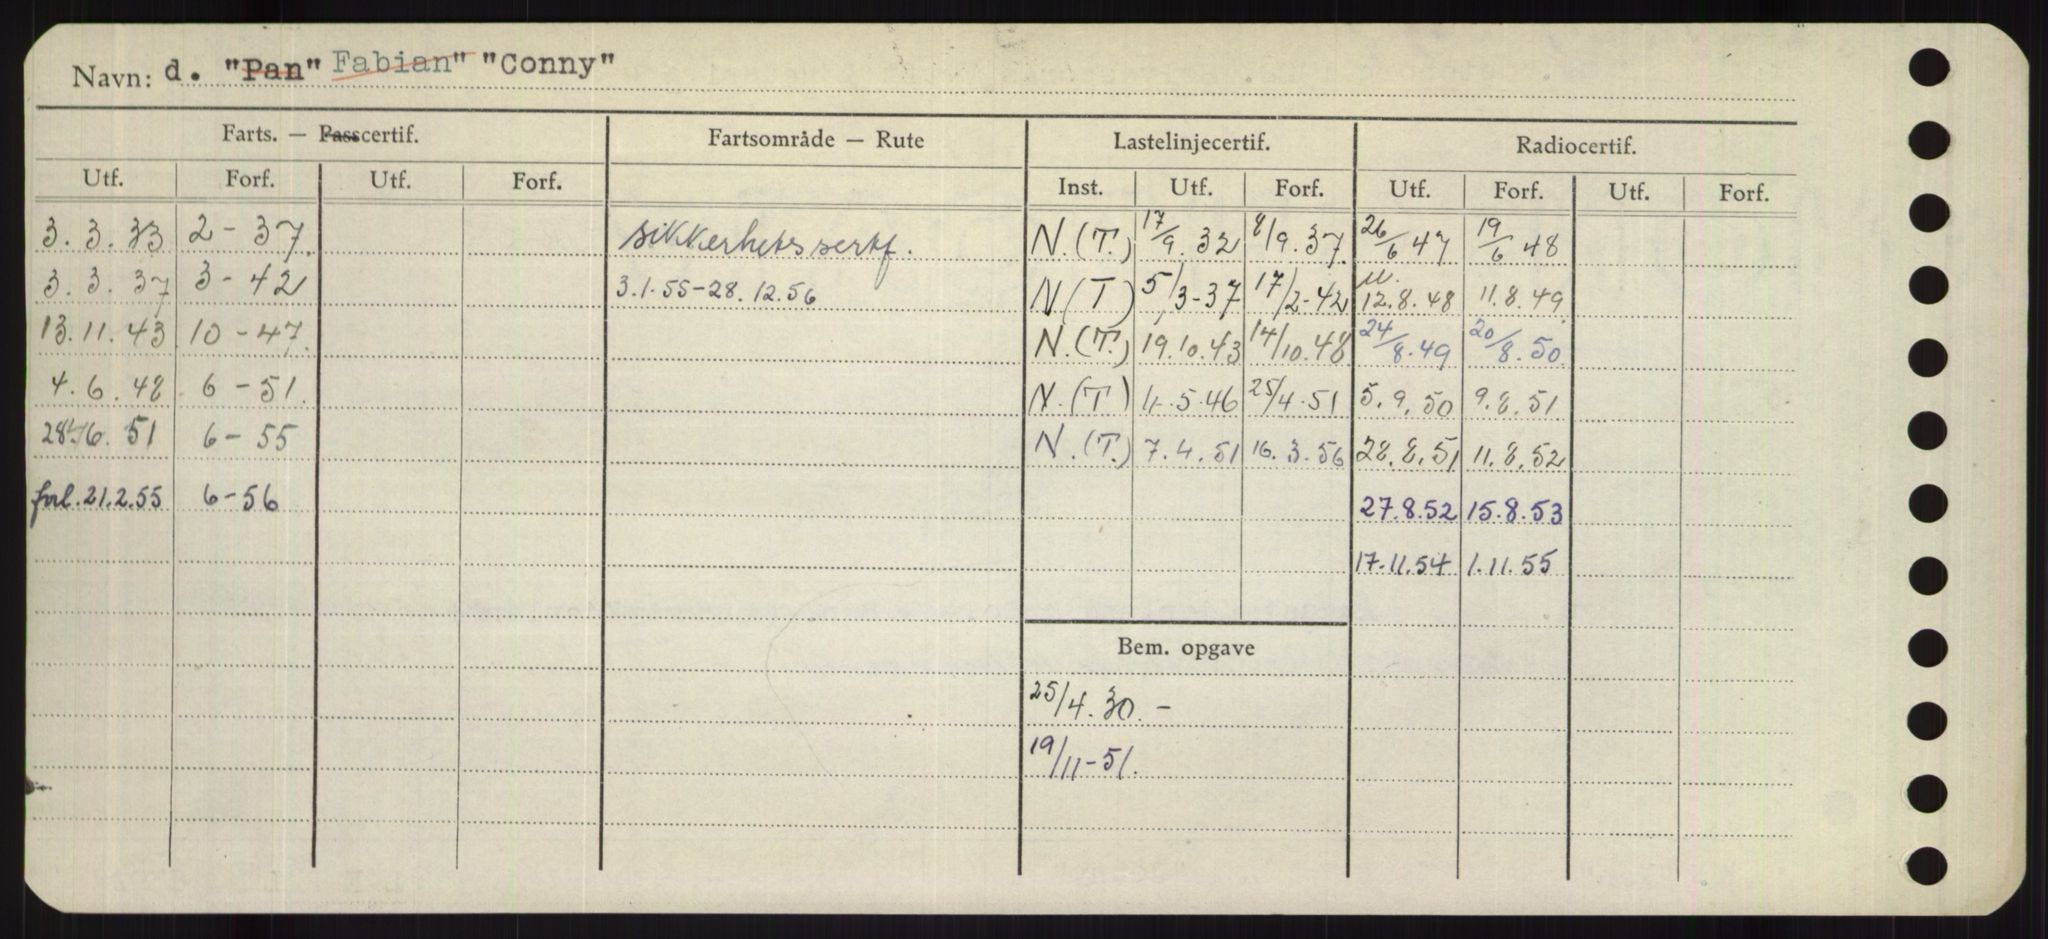 Navn: d. "Pan" Fabian" "Conny"
Farts. — Passcertif. Fartsområde — Rute Lastelinjecertif. Radiocertif.
Utf. Forf. Utf. Forf. Inst. Utf. Forf. Utf. Forf. Utf. Forf.
3.3.33 2-37. sikkerhetssertf. N.(T.) 17/9.32 8/9.37 26/6 47 19/6 48
3.3.37 3-42 3.1.55-28.12.56 N(T) 5/3-37 17/2-42 12.8.48 11.8.49
13.11.43 10-47. N.(T.) 19.10.43 14/10.48 24/8.49 20/8.50
4.6.48 6-51. N.(T) 4.5.46 25/4.51 5.9.50 9.8.51
28/6.51 6-55 N.(T.) 7.4.51 16.3.56 28.8.51 11.8.52
forl.21.2.55 6-56 27.8.52 15.8.53
17.11.54 1.11.55
Bem. opgave
25/4.30.-
19/11-51.